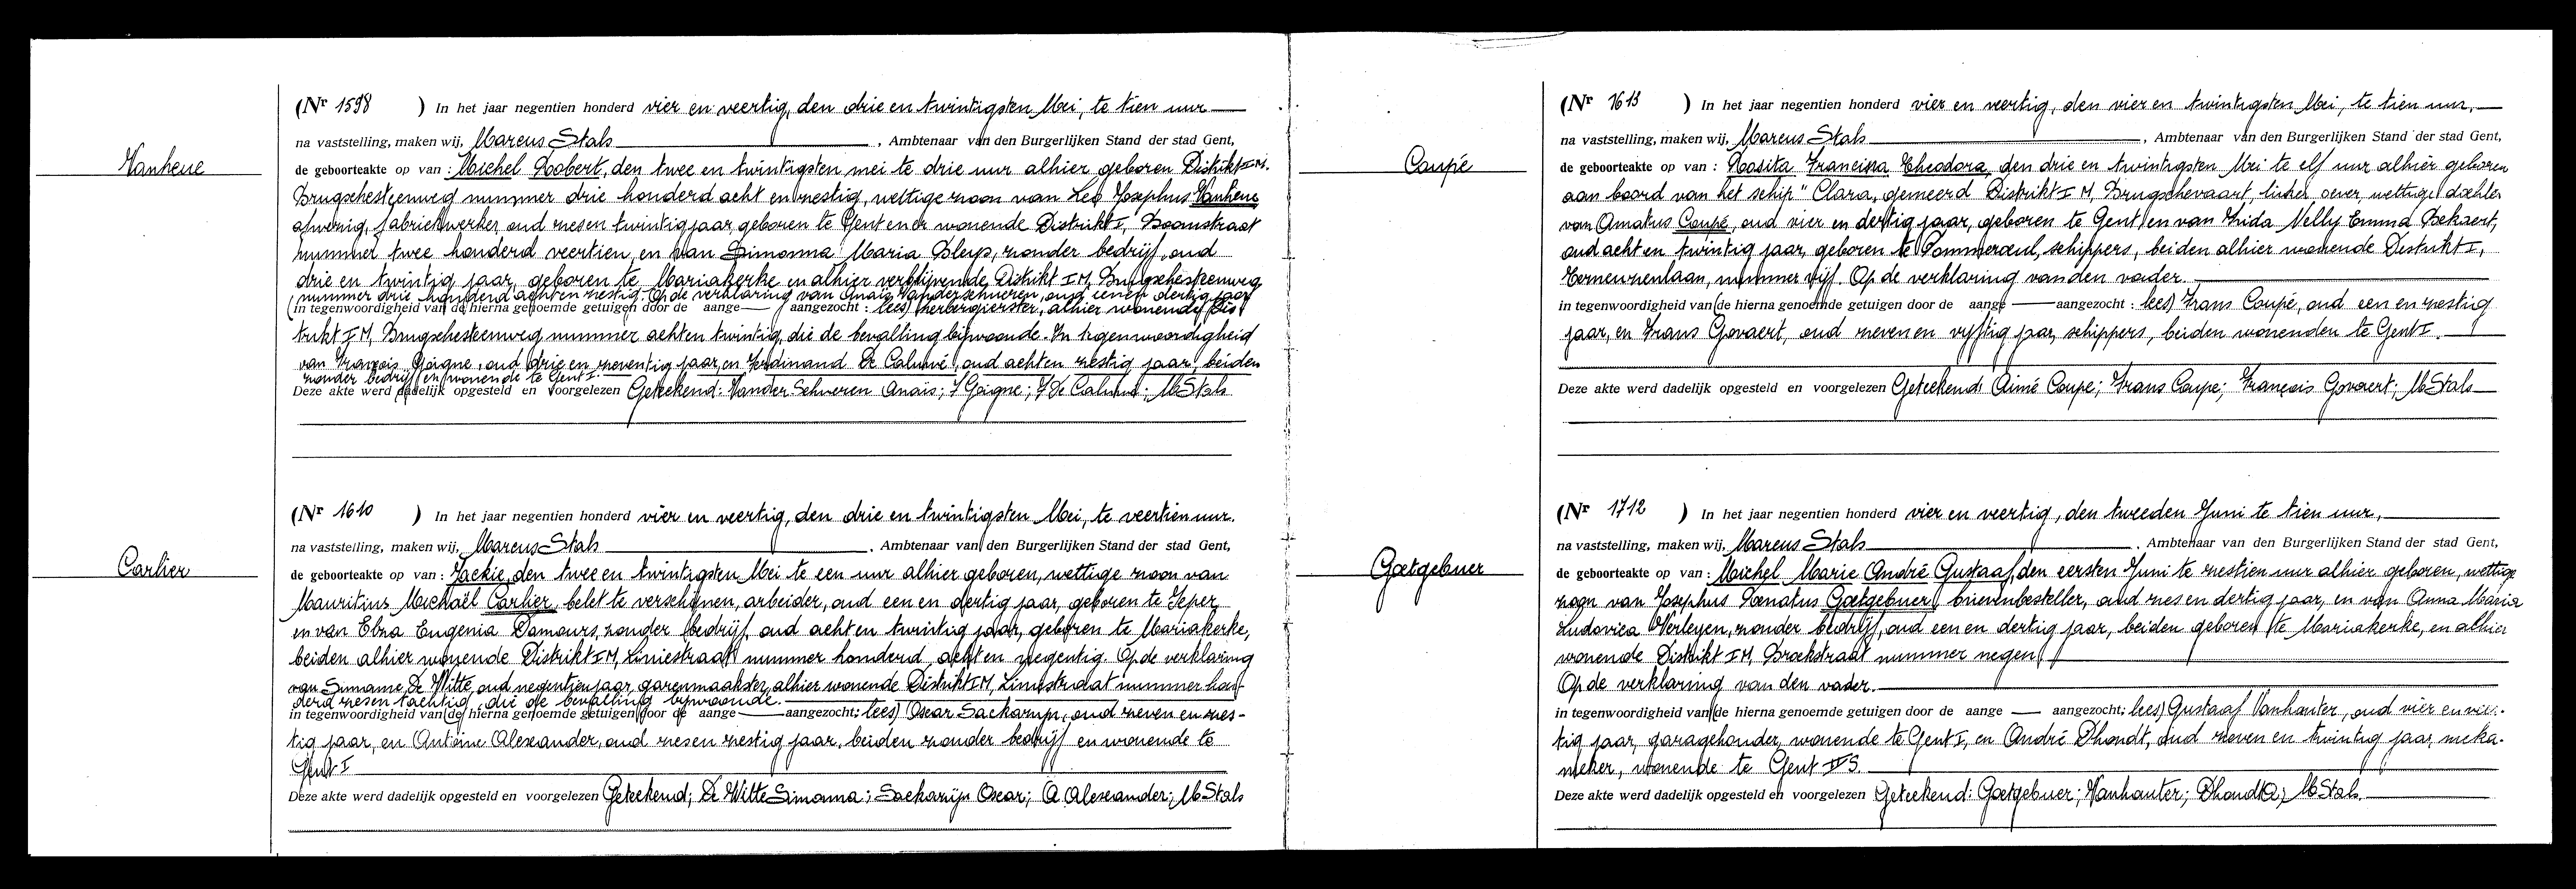 Vanheue
(Nr 1598 ) In het jaar negentien honderd vier en veertig, den drie en twintigsten Mei, te tien uur
na vaststelling, maken wij, Marcus Stals, Ambtenaar van den Burgerlijken Stand der stad Gent,
de geboorteakte op van : Michel Robert, den twee en twintigsten mei te drie uur alhier geboren Distrikt I M.
Brugschesteenweg nummer drie honderd acht en zestig, wettige zoon van Leo Josephus Vanheue
afwezig, fabriekwerker, oud zes en twintig jaar geboren te Gent en er wonende Distrikt I, Boomstraat
nummer twee honderd veertien, en van Simonna Maria Bleys, zonder bedrijf, oud
drie en twintig jaar, geboren te Mariakerke en alhier verblijvende Distrikt I M, Brugschesteenweg
nummer drie honderd acht en zestig. Op de verklaring van Anaïs Vanderschueren, oud een en dertig jaar
(in tegenwoordigheid van de hierna genoemde getuigen door de aange aangezocht : lees) herbergierster, alhier wonende Dis-
trikt I M, Brugschesteenweg nummer acht en twintig, die de bevalling bijwoonde. In tegenwoordigheid
van François Goigne, oud drie en zeventig jaar, en Ferdinand De Caluwé, oud acht en zestig jaar, beiden
zonder bedrijf en wonende te Gent I.
Deze akte werd dadelijk opgesteld en voorgelezen Geteekend: Vander Schueren Anaïs; F Goigne; F De Caluwé; M Stals
Carlier
(Nr 1610 ) In het jaar negentien honderd vier en veertig, den drie en twintigsten Mei, te veertien uur.
na vaststelling, maken wij, Marcus Stals, Ambtenaar van den Burgerlijken Stand der stad Gent,
de geboorteakte op van : Jackie, den twee en twintigsten Mei te een uur alhier geboren, wettige zoon van
Mauritius Michaël Carlier, belet te verschijnen, arbeider, oud een en dertig jaar, geboren te Ieper
en van Elza Eugenia Damours, zonder bedrijf, oud acht en twintig jaar, geboren te Mariakerke,
beiden alhier wonende Distrikt I M, Liniestraat nummer honderd acht en negentig. Op de verklaring
van Simonne De Witte, oud negentien jaar, garenmaakster, alhier wonende Distrikt I M, Liniestraat nummer hon-
derd zes en tachtig, die de bevalling bijwoonde.
in tegenwoordigheid van (de hierna genoemde getuigen door de aange aangezocht: lees) Oscar Sackarijn, oud zeven en zes-
tig jaar, en Antoine Alexander, oud zes en zestig jaar, beiden zonder bedrijf en wonende te
Gent I
Deze akte werd dadelijk opgesteld en voorgelezen Geteekend; De Witte Simonna; Sackarijn Oscar; A Alexander; M Stals
Coupé
(Nr 1613 ) In het jaar negentien honderd vier en veertig, den vier en twintigsten Mei, te tien uur,
na vaststelling, maken wij, Marcus Stals, Ambtenaar van den Burgerlijken Stand der stad Gent,
de geboorteakte op van : Rosita Francisca Theodora, den drie en twintigsten Mei te elf uur alhier geboren
aan boord van het schip "Clara, gemeerd Distrikt I M, Brugschevaart, linker oever, wettige dochter
van Amatus Coupé, oud vier en dertig jaar, geboren te Gent en van Frida Nelly Emma Bekaert,
oud acht en twintig jaar, geboren te Pommeroeul, schippers, beiden alhier wonende Distrikt I,
Terneuzenlaan, nummer vijf. Op de verklaring van den vader.
in tegenwoordigheid van (de hierna genoemde getuigen door de aange aangezocht : lees) Frans Coupé, oud een en zestig
jaar, en Frans Govaert, oud zeven en vijftig jaar, schippers, beiden wonenden te Gent I.
Deze akte werd dadelijk opgesteld en voorgelezen Geteekend: Aimé Coupe; Frans Coupe; François Govaert; M Stals
Goetgebuer
(Nr 1712 ) In het jaar negentien honderd vier en veertig, den tweeden Juni te tien uur,
na vaststelling, maken wij, Marcus Stals, Ambtenaar van den Burgerlijken Stand der stad Gent,
de geboorteakte op van : Michel Marie André Gustaaf, den eersten Juni te zestien uur alhier geboren, wettige
zoon van Josephus Renatus Goetgebuer, brievenbesteller, oud zes en dertig jaar, en van Anna Maria
Ludovica Verleyen, zonder bedrijf, oud een en dertig jaar, beiden geboren te Mariakerke, en alhier
wonende Distrikt I M, Broekstraat nummer negen
Op de verklaring van den vader.
in tegenwoordigheid van (de hierna genoemde getuigen door de aange aangezocht; lees) Gustaaf Vanhauter, oud vier en veer-
tig jaar, garagehouder, wonende te Gent I, en André Dhondt, oud zeven en twintig jaar, meka-
nieker, wonende te Gent II S.
Deze akte werd dadelijk opgesteld en voorgelezen Geteekend: Goetgebuer; Vanhauter; Dhondt A; M Stals.